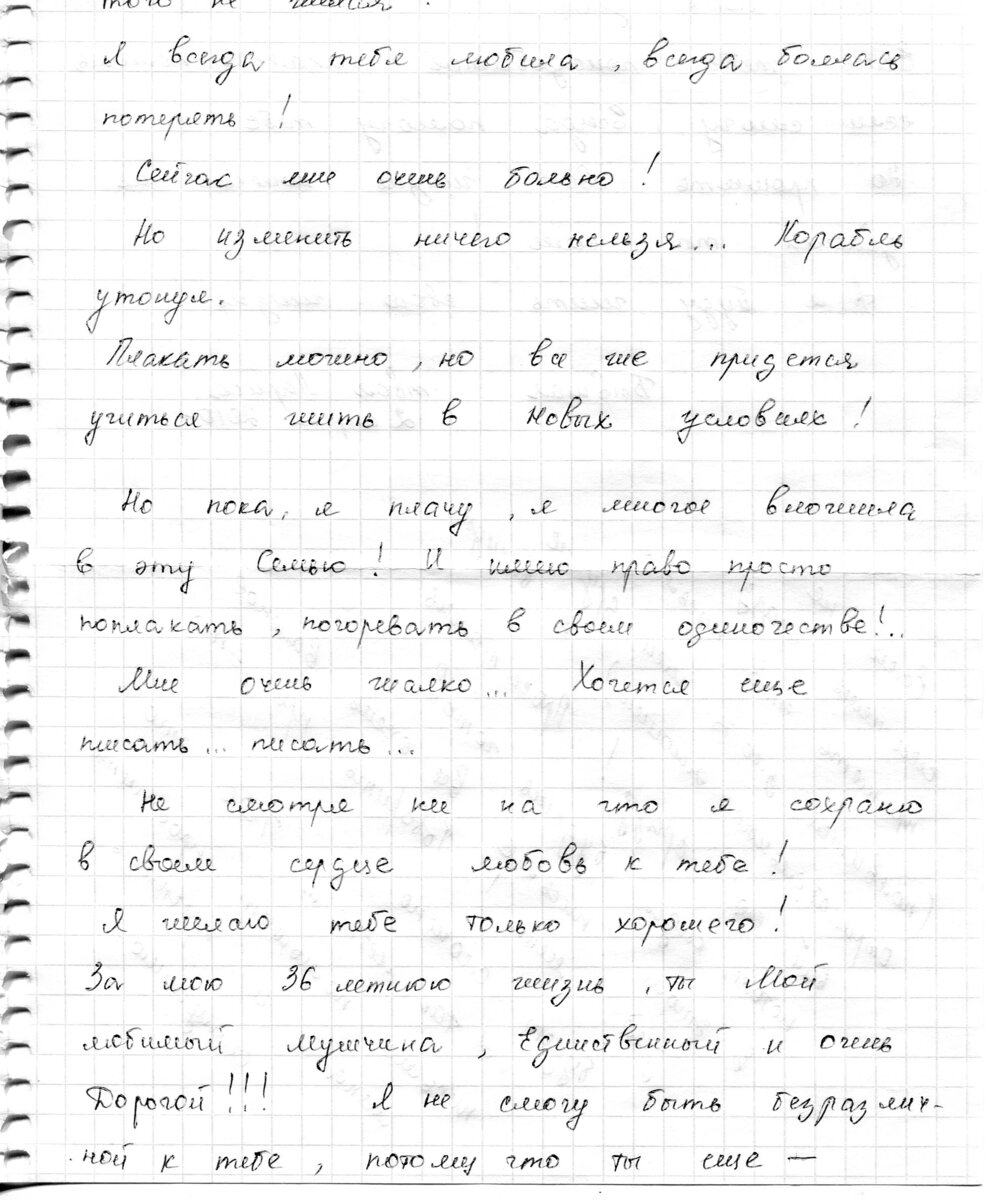 того не
Я всегда тебя любила, всегда боялась
потерять!
Сейчас мне очень больно!
Но изменить ничего нельзя... Корабль
утонул.
Плакать можно, но все же придется
учиться жить в новых условиях!
Но пока, я плачу, я многое вложила
в эту Семью! И имею право просто
поплакать, погоревать в своем одиночестве!..
Мне очень жалко... Хочется еще
писать... писать...
Не смотря ни на что я сохраню
в своем сердце любовь к тебе!
Я желаю тебе только хорошего!
За мою 36 летнюю жизнь, ты Мой
любимый мужчина, Единственный и очень
Дорогой!!! Я не смогу быть безразлич-
ной к тебе, потому что ты еще —